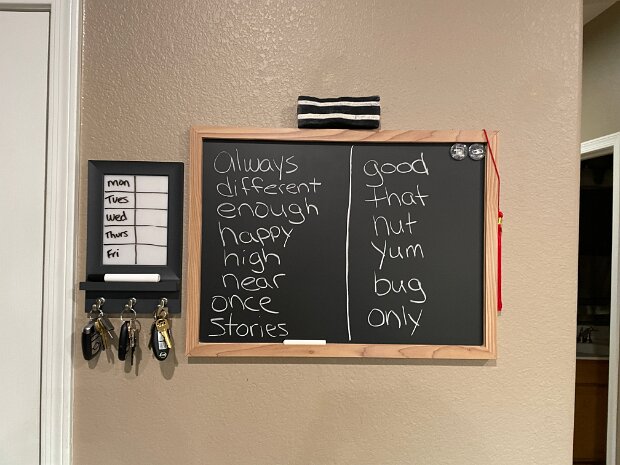 mon
Tues
Wed
Thurs
Fri
always
different
enough
happy
high
near
once
Stories
good
that
nut
yum
bug
only